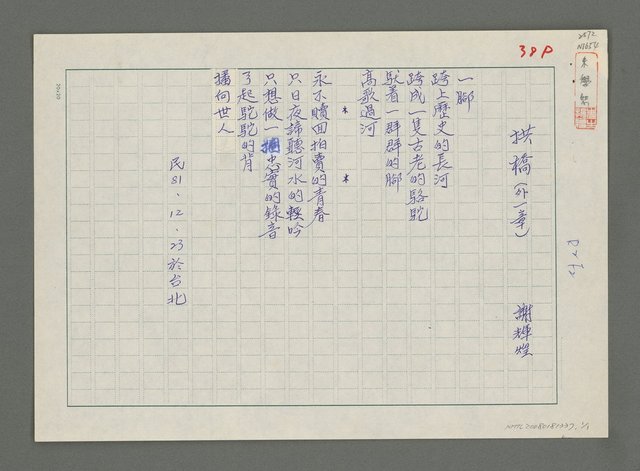 38P
拱橋（外一章）
謝輝煌
一腳
跨上歷史的長河
跨成一隻古老的駱駝
馱着一群群的腳
高歌過河
* *
永不贖回拍賣的青春
只日夜諦聽河水的輕吟
只想做一捆忠實的錄音
弓起駝駝的背
播向世人
民81.12.23於台北
20×20